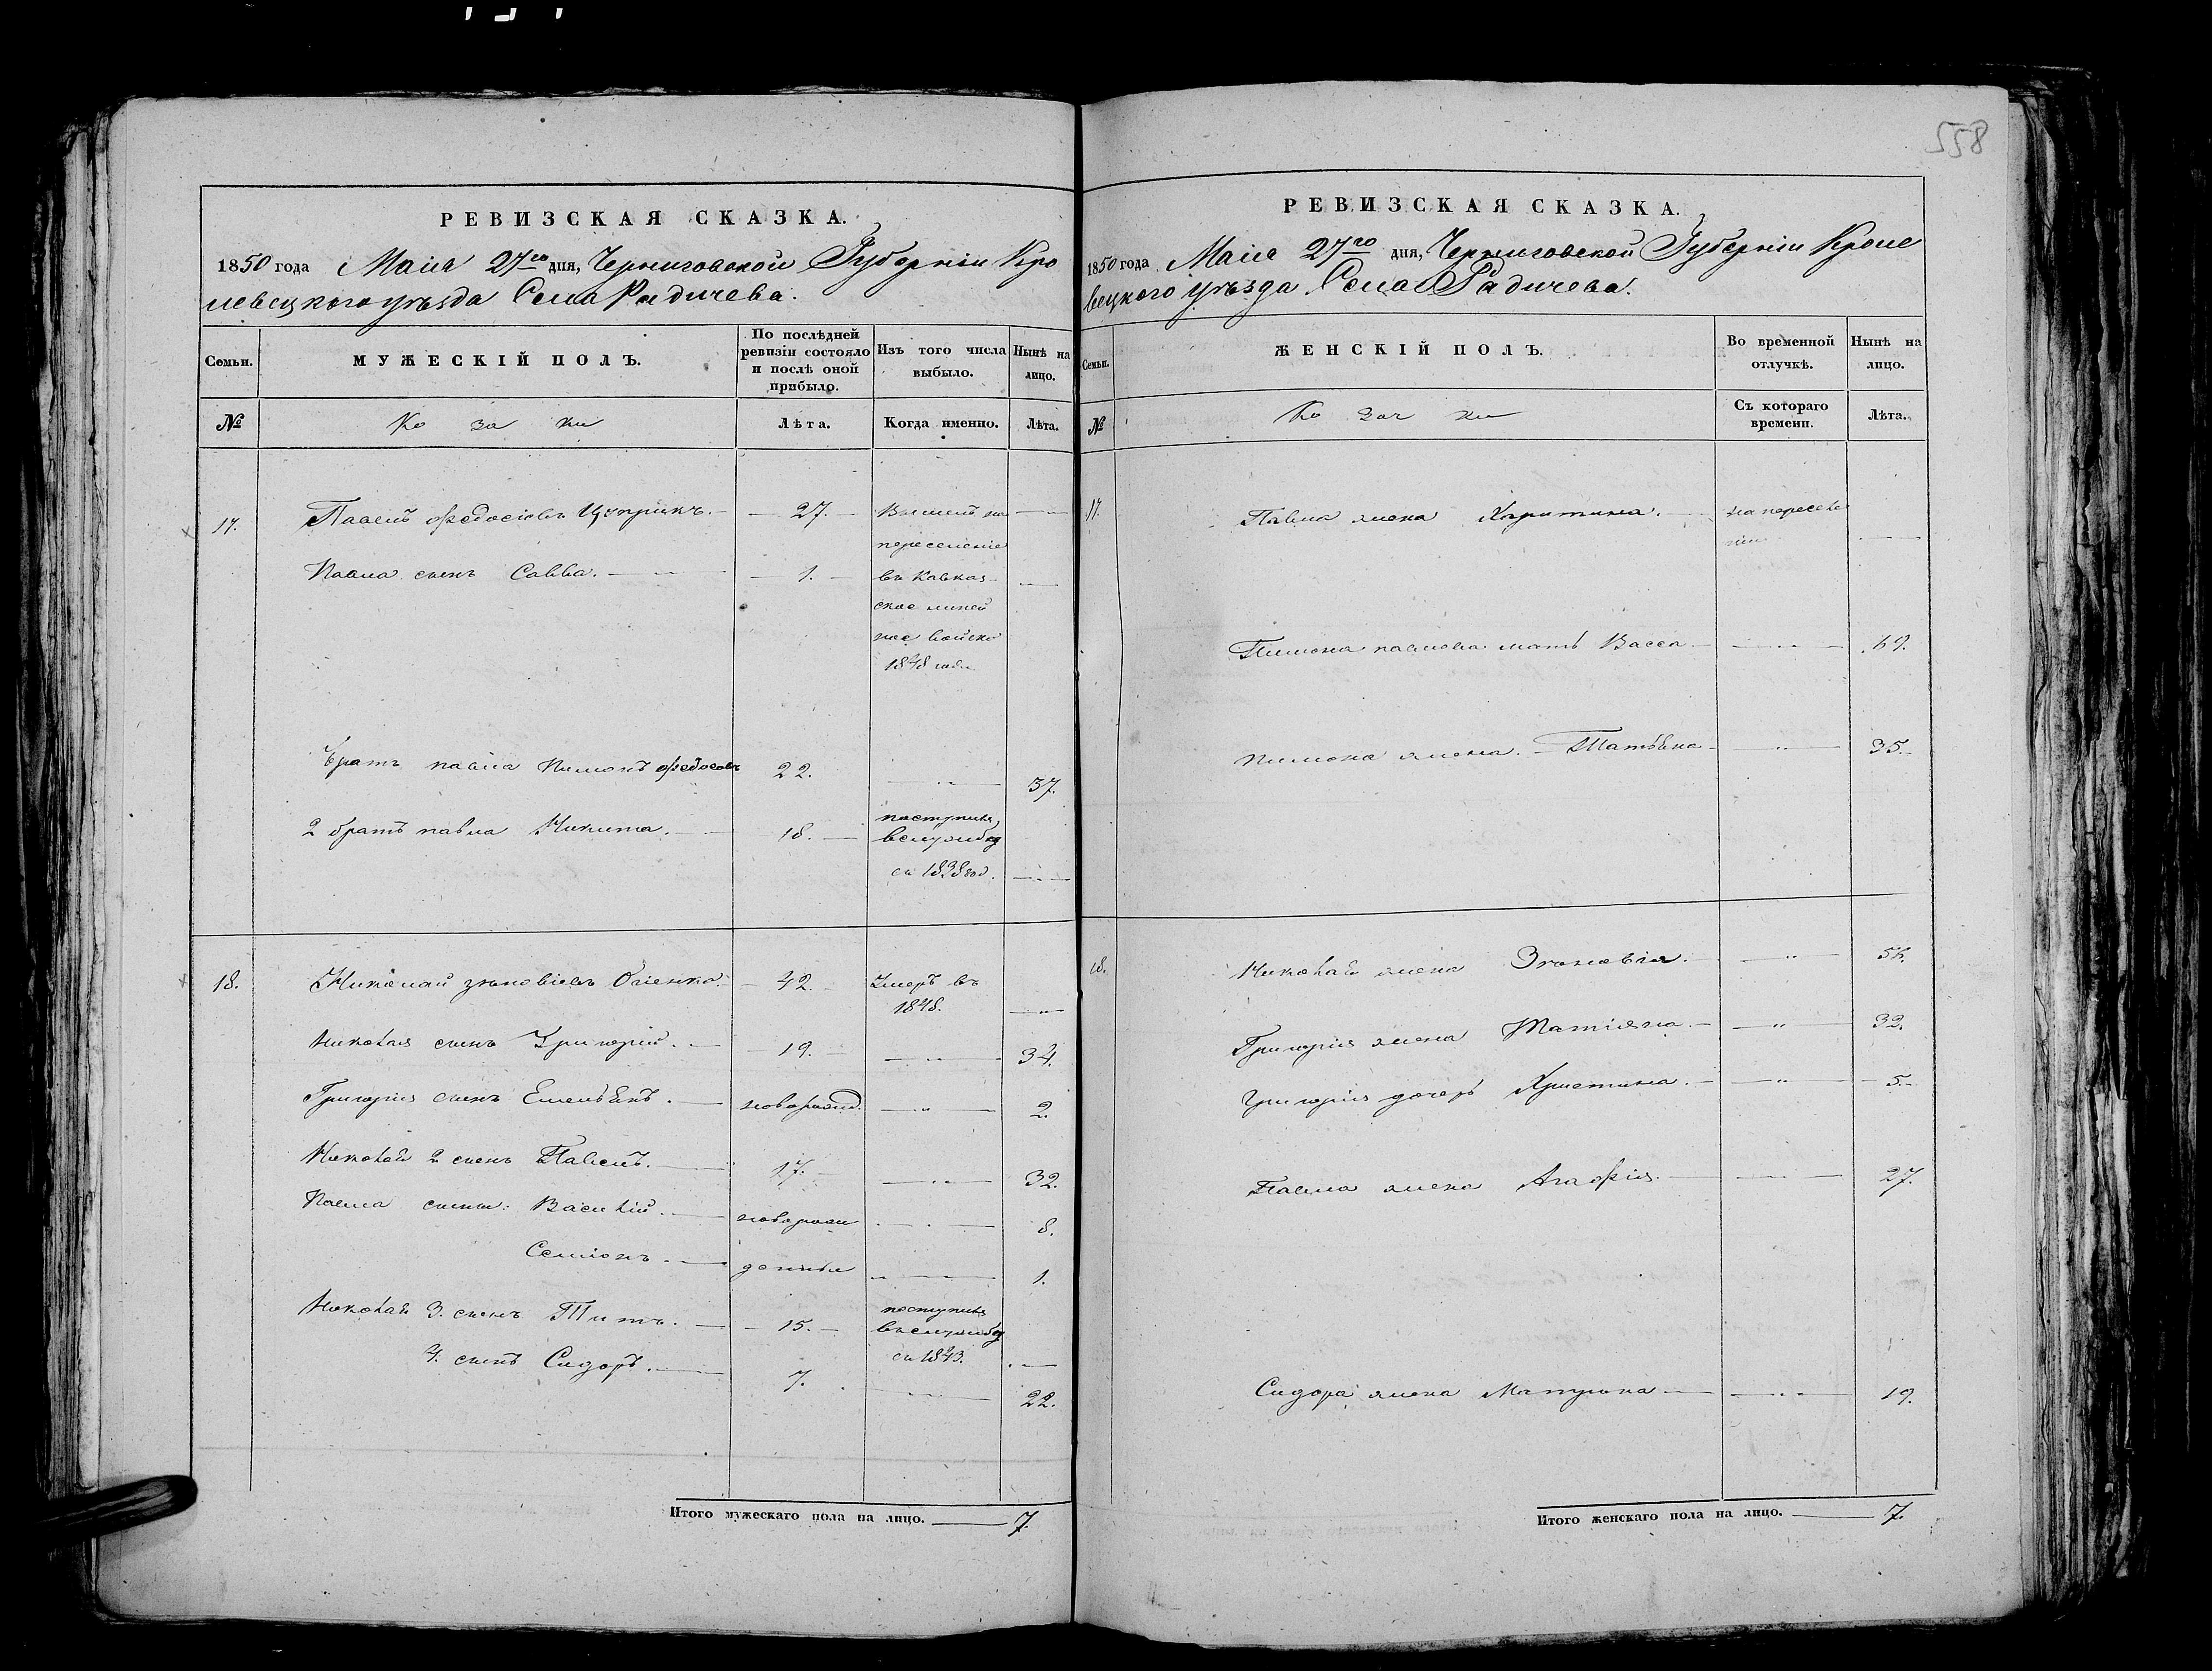 558
РЕВИЗСКАЯ СКАЗКА.
1850 года Маия 27го дня, Черниговской Губерніи Кро
левецкого уѣзда Села Радичева.
Семьи.
МУЖЕСКІЙ ПОЛЪ.
По послѣдней ревизіи состояло и послѣ оной прибыло.
Изъ того числа выбыло.
Нынѣ на лицо.
№
Ко за ки
Лѣта.
Когда именно.
Лѣта.
17.
Павелъ Федосіевъ — 27. — Вышелъ на
переселеніе
Павла сынъ Савва. — 1. — въ Кавказ
ское линей
ное войско
1848 года
Братъ павла Пимонъ Федосовъ 22. — 37.
2 братъ павла Никита. — 18. — поступилъ
вслужбу
съ 1838 год.
18.
Николай зѣновіевъ Огіенко. — 42. — Умеръ въ
1848.
Николая сынъ Григорій. — 19. — 34.
Григорія сынъ Емельянъ. — новорожд. — 2.
Николая 2 сынъ Павелъ. — 17. — 32.
Павла сыны: Василій. — новорож — 8.
Семіонъ. — денные — 1.
Николая 3. сынъ Титъ. — 15. — поступилъ
въслужбу
съ 1843.
4. сынъ Сидоръ. — 7. — 22.
Итого мужескаго пола на лицо. — 7.
РЕВИЗСКАЯ СКАЗКА.
1850 года Маия 27го дня, Черниговской Губерніи Кроле
вецкого уѣзда Села Радичева.
Семьи.
ЖЕНСКІЙ ПОЛЪ.
Во временной отлучкѣ.
Нынѣ на лицо.
№
Ко зач ки
Съ котораго времени.
Лѣта.
17.
Павла жена Харитина. — на переселе
ніи
Пимона павлова мать Васса — 69.
Пимона жена. — Татьяна — 35.
18.
Николая жена Зѣновія. — 56.
Григорія жена Татіяна. — 32.
Григорія дочерь Христина. — 5.
Павла жена Агафія. — 27.
Сидора жена Матрона — 19.
Итого женскаго пола на лицо. — 7.